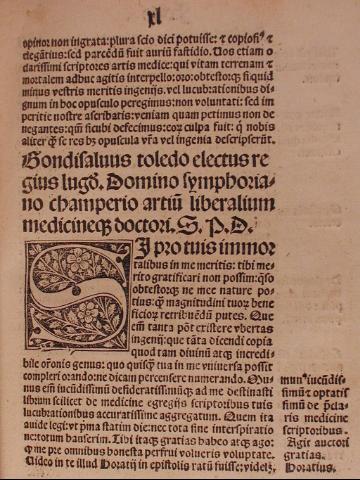 xl
opinor non ingrata: plura scio dici potuisse: ⁊ copiosiꝰ ⁊
elegãtius: sed parcẽdũ fuit auriũ fastidio. Uos etiam o
clarissimi scriptores artis medice: qui vitam terrenam ⁊
mortalem adhuc agitis interpello: oro: obtestorqꝫ si quid
minus vestris meritis ingenijs. vel lucubrationibus di-
gnum in hoc opusculo peregimus: non voluntati: sed im
peritie nostre ascribatis: veniam quam petimus non de
negantes: qm̃ sicubi defecimus: eorꝫ culpa fuit: ꝗ nobis
aliter ꝗ̃ se res hꝫ opuscula vr̃a vel ingenia descripserũt.
Gondisaluus toledo electus re
gius lugd̃. Domino symphoria-
no champerio artiũ liberalium
medicineqꝫ doctori. S. P. D.
SI pro tuis immor
talibus in me meritis: tibi me-
rito gratificari non possim: q̃so
obtestorqꝫ ne mee nature po-
tius: ꝗ̃ magnitudini tuorꝫ bene
ficiorꝫ retribuẽdũ putes. Que
em̃ tanta põt existere vbertas
ingenij: que tãta dicendi copia
quod tam diuinũ atqꝫ incredi-
bile orõnis genus: quo quisꝗ̃ tua in me vniuersa possit
compleri orando: ne dicam percensere numerando. Mu-
nus em̃ iucũdissimũ desideratissimũqꝫ ad me destinasti
librum scilicet de medicine egregijs scriptoribus tuis
lucubrationibus accuratissime aggregatum. Quem ita
auide legi: vt pma statim die: nec tota sine interspiratio
ne: totum hauserim. Tibi itaqꝫ gratias habeo atqꝫ ago:
ꝗ me pre omnibus honesta perfrui volueris voluptate.
Uideo in te illud Horatij in epistolis ratũ fuisse: videlꝫ.
munꝰ iucũdis-
simũ ⁊ optatis
simũ de p̃cla-
ris medicine
scriptoribus.
Agit auctori
gratias.
Horatius.